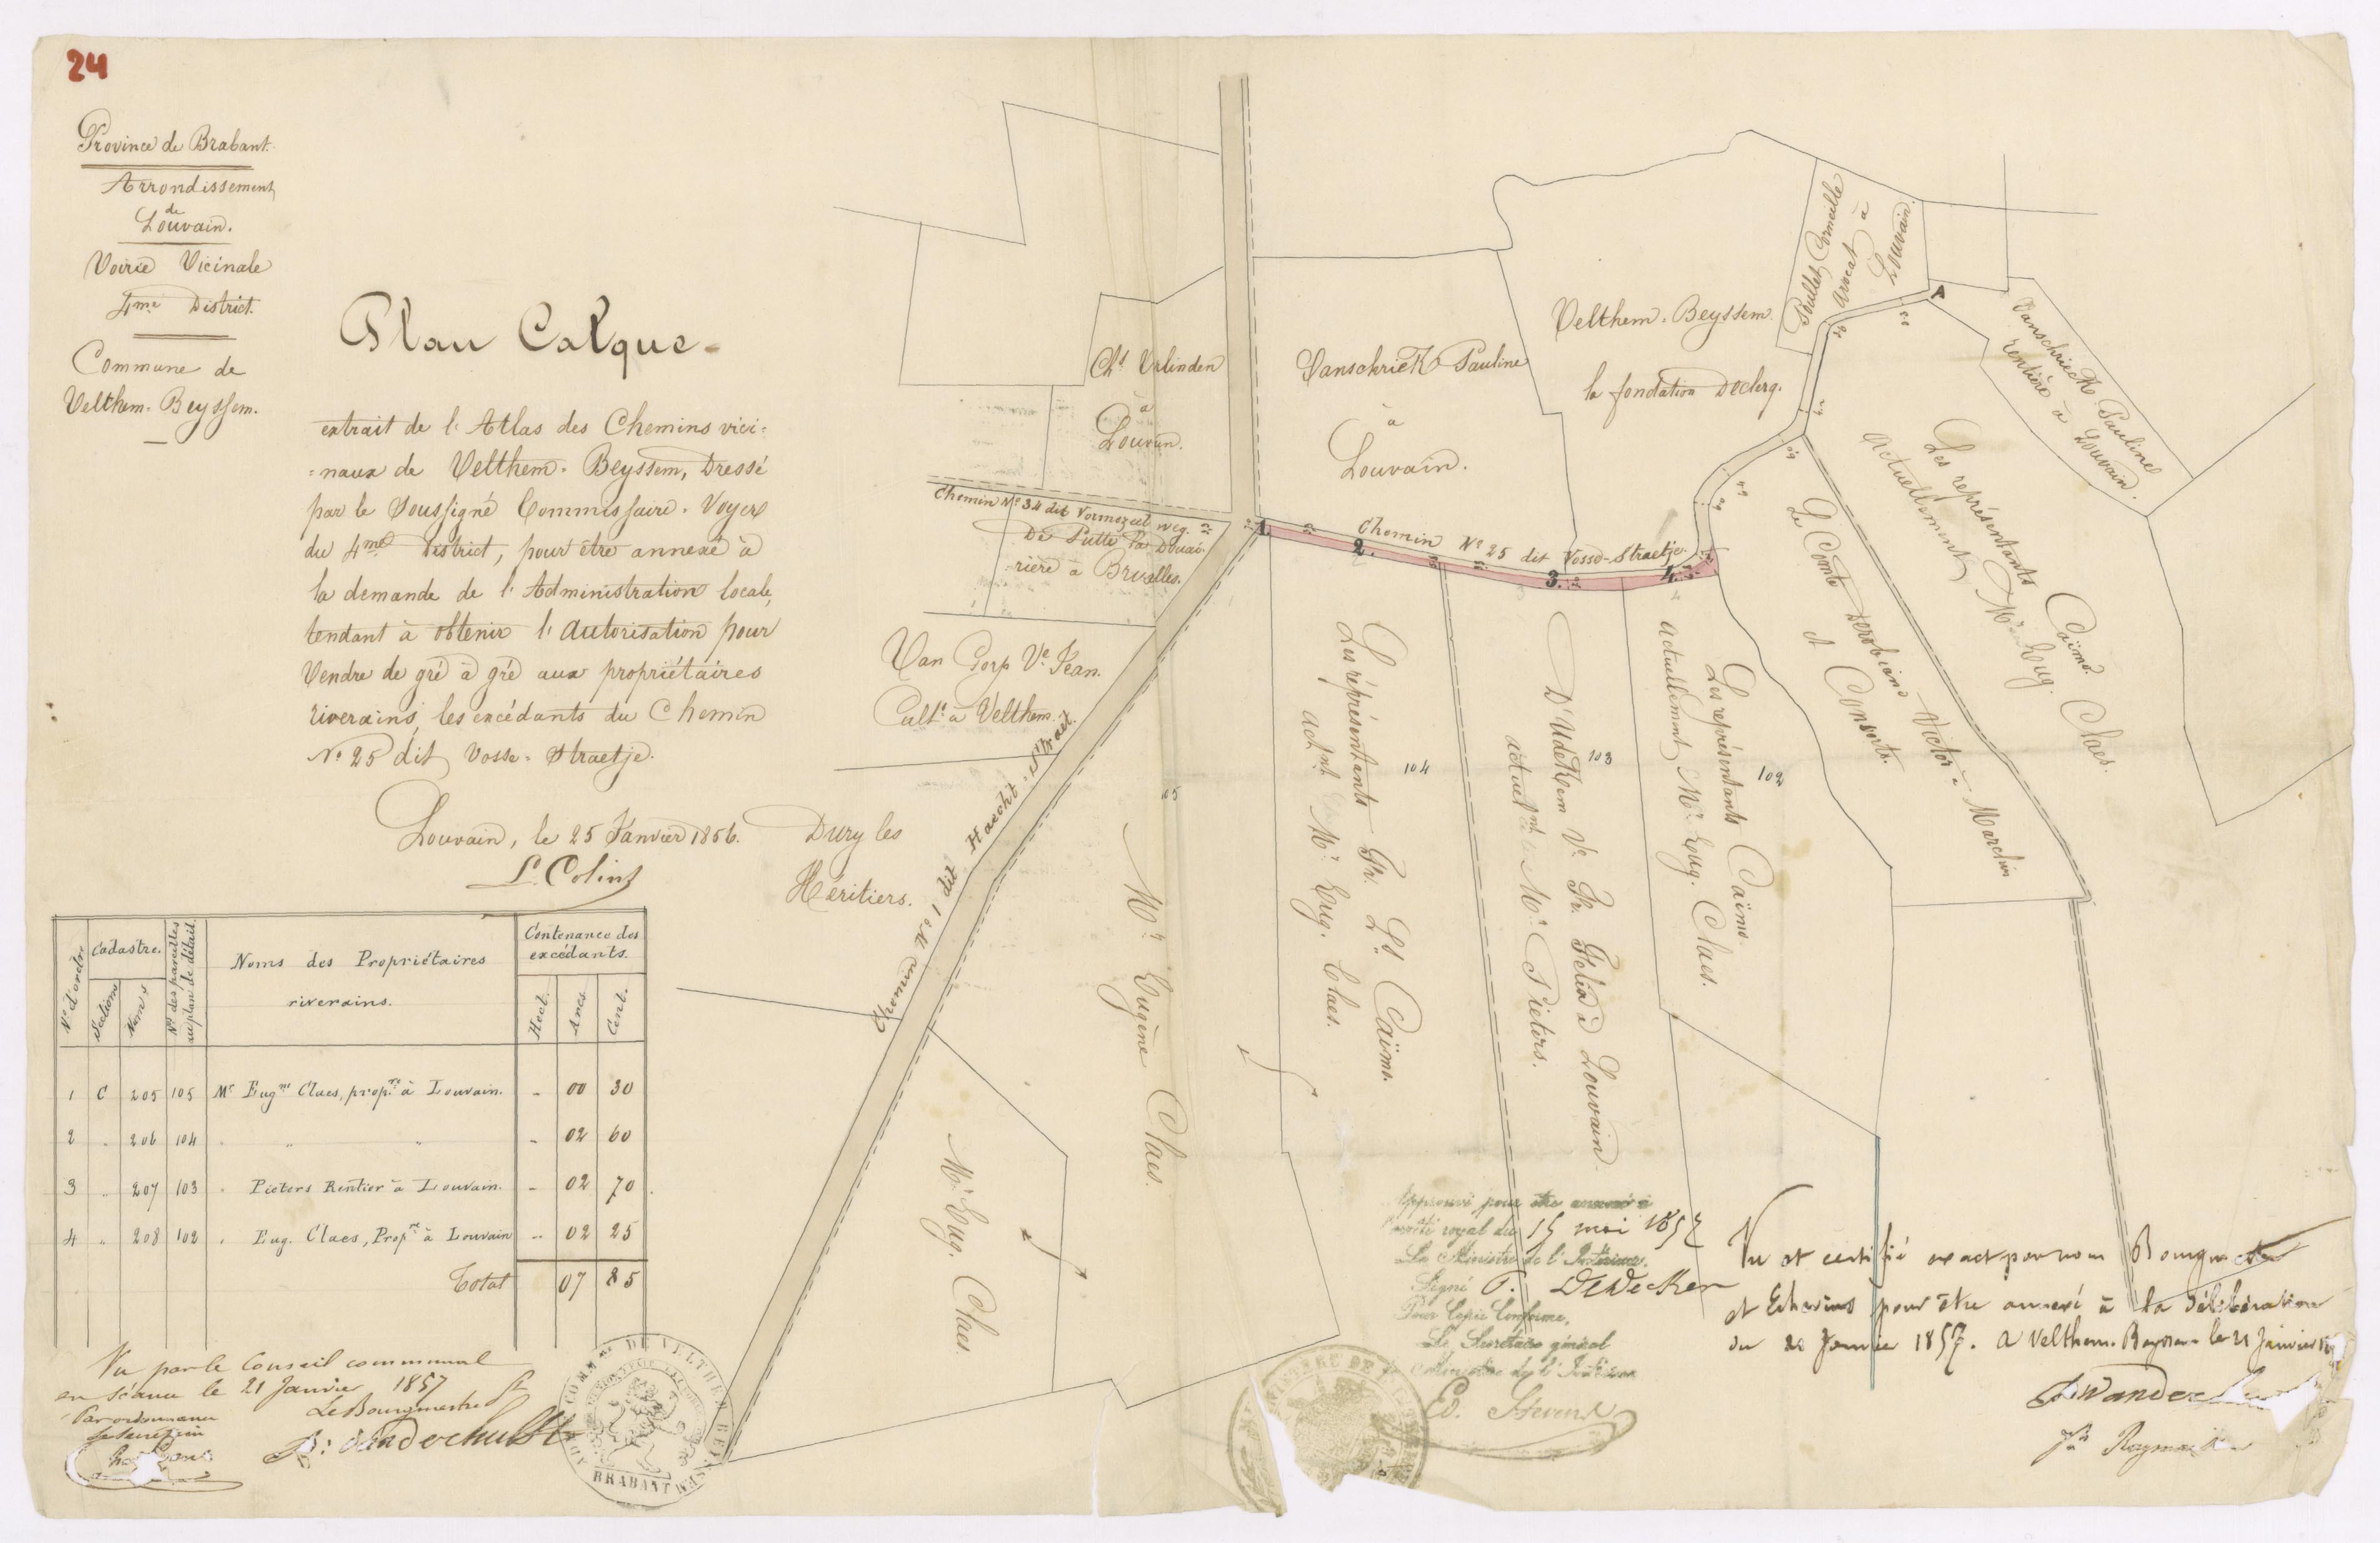 24
Province de Brabant.
Arrondissement
de
Louvain.
Voirie Vicinale
4me District.
Commune de
Velthem-Beyssem.
Plan Calque
extrait de l'Atlas des Chemins vici=
=naux de Velthem-Beyssem, Dressé
par le Soussigné Commissaire-Voyer
du 4me District, pour être annexé à
la demande de l'Administration locale,
tendant à obtenir l'autorisation pour
Vendre de gré à gré aux propriétaires
riverains, les excédants du Chemin
No 25 dit Vosse-Straetje.
Louvain, le 25 Janvier 1856.
L. Colins
No d'ordre
Cadastre.
Sections
Num.s
Nos des parcelles
au plan de détail.
Noms des Propriétaires
riverains.
Contenance des
excédants.
Hect. Ares Cent.
1 C 205 105 Mr Eugne Claes, propre à Louvain. - 00 30
2 " 206 104 " " " - 02 60
3 " 207 103 " Pieters Rentier à Louvain. - 02 70
4 " 208 102 " Eug. Claes, Propre à Louvain - 02 25
Total 07 85
Vu par le Conseil communal
en séance le 21 Janvier 1857
Le Bourgmestre
Par ordonnance
COMM. DE VELTHEM BEYSSEM
BRABANT
Cht Verlinden
à
Louvain.
Chemin No 34 dit Vormezeel weg.
De Putte la Douai-
rière à Bruxelles.
Van Gorp Ve Jean.
Cultr à Velthem.
Dury les
Héritiers.
Chemin No 1 dit Haecht-Straet.
Vanschriek Pauline
à
Louvain.
Velthem-Beyssem.
la fondation Declerq.
Poullet Corneille
avocat à
Louvain.
A
Vanschrieck Pauline
rentière à Louvain.
Les représentants Caïmo.
Actuellement Mr Eug. Claes.
Le Comte Derobiano Victor à Marchin
et Consorts.
1. 2. 3. 4.
Chemin No 25 dit Vosse-Straetje.
105
Mr Eugène Claes.
104
Les représentants Fr. Ls Caïmo.
actnt Mr Eug. Claes.
103
D'Udekem Ve Fr. Félix à Louvain
actuelnt Mr Pieters.
102
Les représentants Caïmo.
actuellement Mr Eug. Claes.
Mr Eug. Claes.
Approuvé pour être annexé à
l'arrêté royal du 15 mai 1857
Le Ministre de l'Intérieur.
Signé P. DeDecker
Pour Copie Conforme,
Le Secrétaire général
du Ministère de l'Intérieur
Ed. Stevens
Vu et certifié exact par nous Bourgmestre
et Echevins pour être annexé à la délibération
du 20 Janvier 1857. A Velthem-Beyssem le 21 Janvier